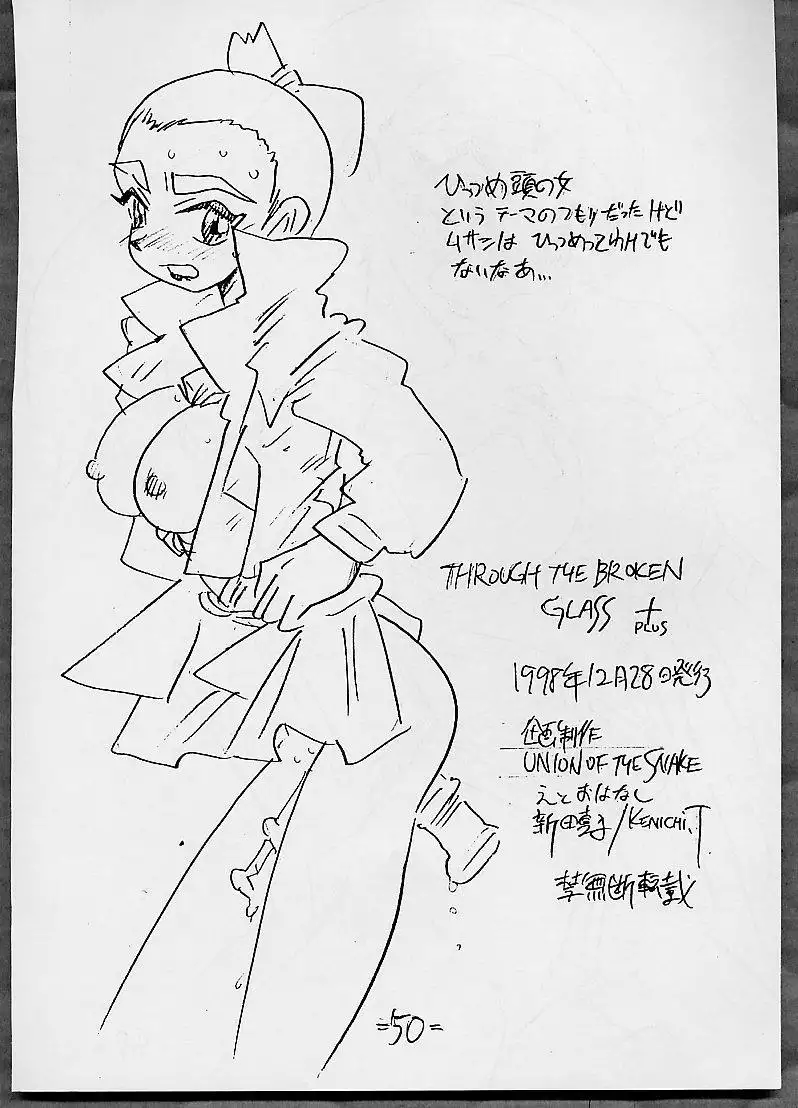 ひっつめ頭の女
というテーマのつもりだったけど
ムサシは ひっつめってわけでも
ないなあ…
THROUGH THE BROKEN
GLASS +
PLUS
1998年12月28日発行
企画制作
UNION OF THE SNAKE
えとおはなし
新田真子/KENICHI.T
禁無断転載
=50=